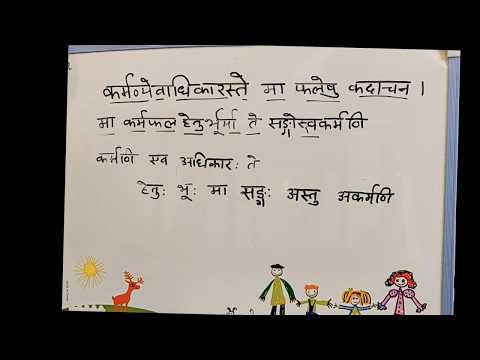 कर्मण्येवाधिकारस्ते मा फलेषु कदाचन ।
मा कर्मफल हेतुर्भूर्मा ते सङ्गोस्त्वकर्मनि
कर्माने एव अधिकारः ते
हेतुः भूः मा सङ्गः अस्तु अकर्मनि